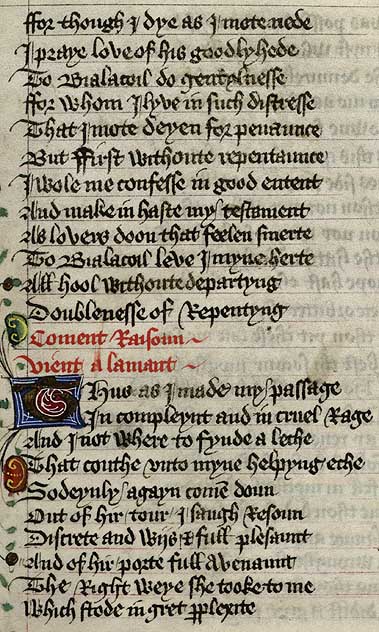 ffor though I dye as I mote nede
I praye love of his goodlyhede
To Bialacoil do gentylnesse
ffor whom I lyve in such distresse
That I mote deyen for penaunce
But ffirst withoute repentaunce
I wole me confesse in good entent
And make in haste my testament
As lovers doon that feelen smerte
To Bialacoil leve I myne herte
All hool withoute departyng
Doublenesse of Repentyng
Coment Raisoun
vient a lamant
Thus as I made my passage
In compleynt and in cruel Rage
And I not where to fynde a leche
That couthe vnto myne helpyng eche
Sodeynly agayn comen doun
Out of hir tour I saugh Resoun
Discrete and wijs & full plesaunt
And of hir porte full Avenaunt
The Right weye she tooke to me
Which stode in gret pplexite